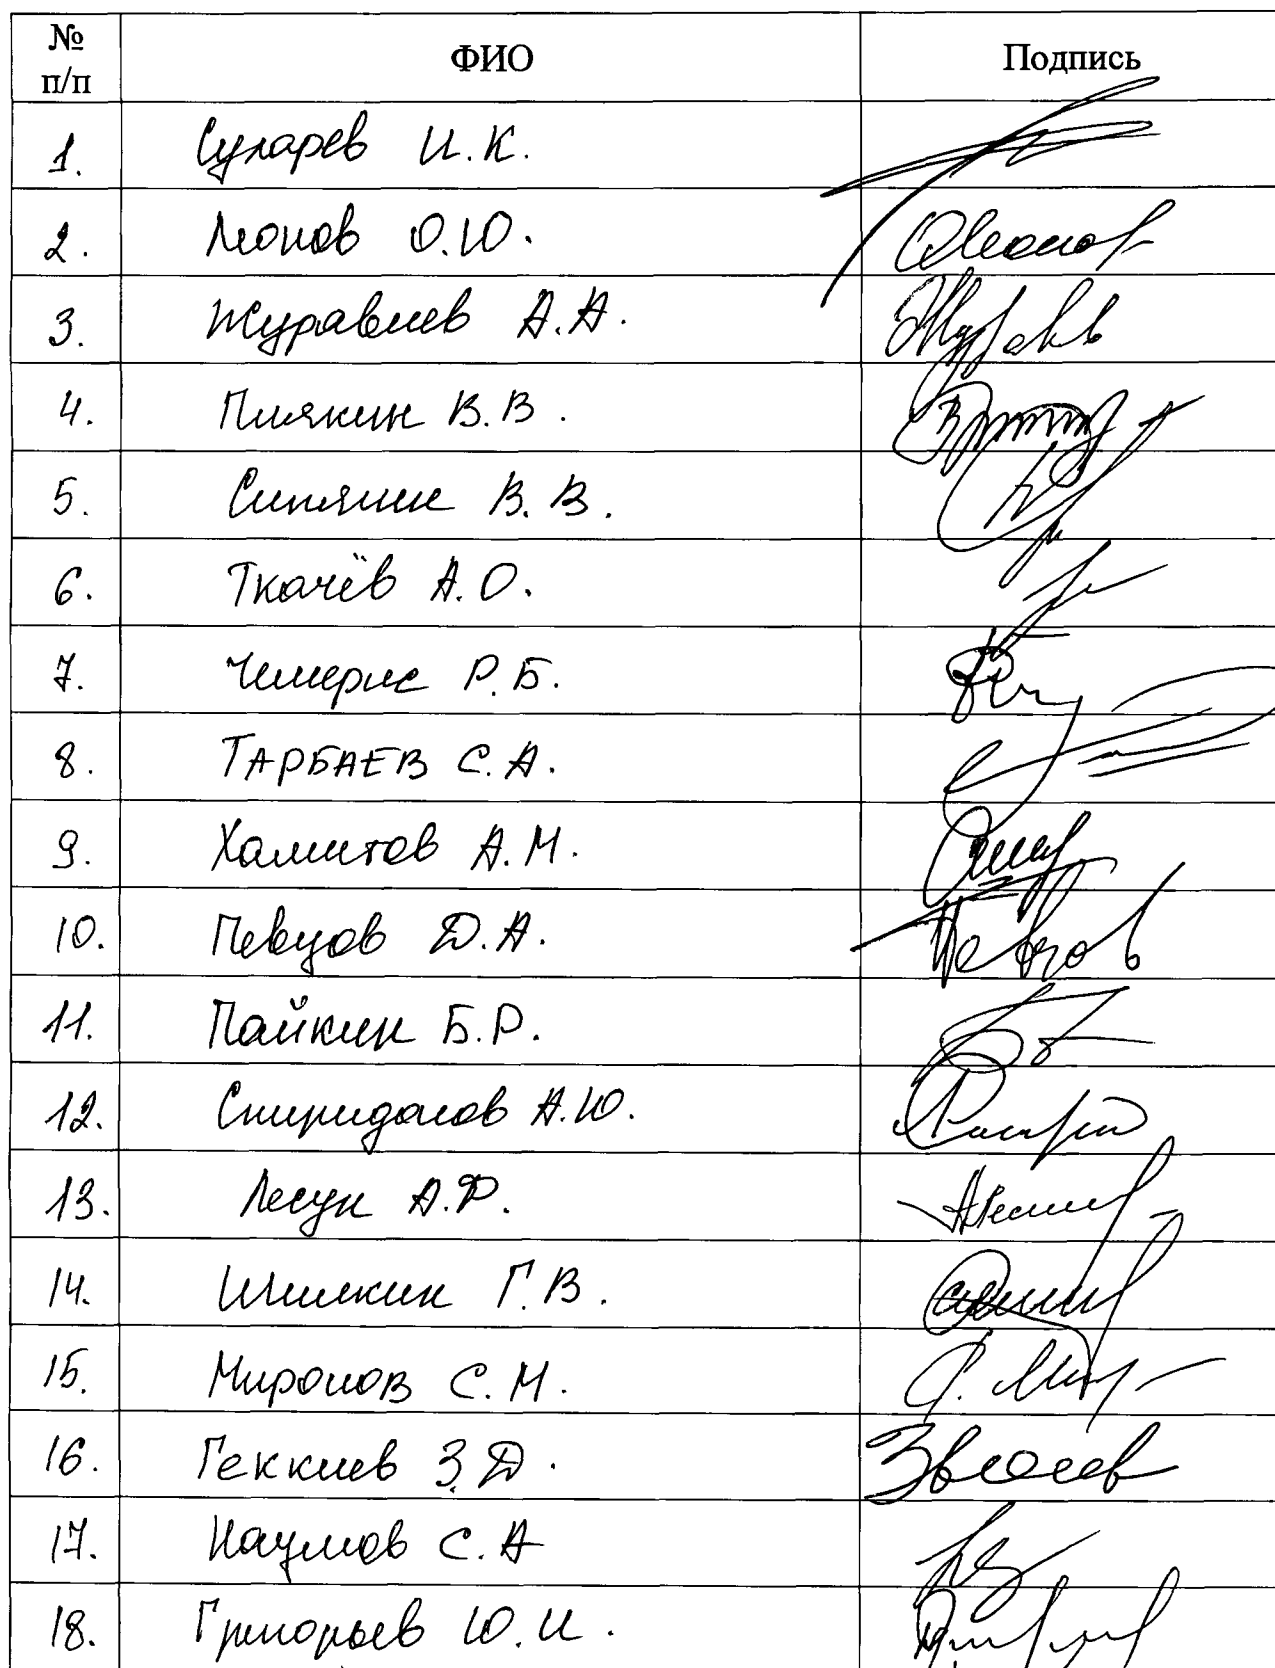 № п/п ФИО Подпись
1. Сухарев И.К.
2. Леонов О.Ю.
3. Журавлев А.А.
4. Пилякин В.В.
5. Синягин В.В.
6. Ткачёв А.О.
7. Чемерис Р.Б.
8. ТАРБАЕВ С.А.
9. Хамитов А.М.
10. Певцов Д.А.
11. Пайкин Б.Р.
12. Спиридонов А.Ю.
13. Лесун А.Ф.
14. Шилкин Г.В.
15. Миронов С.М.
16. Геккиев З.Д.
17. Наумов С.А
18. Григорьев Ю.И.